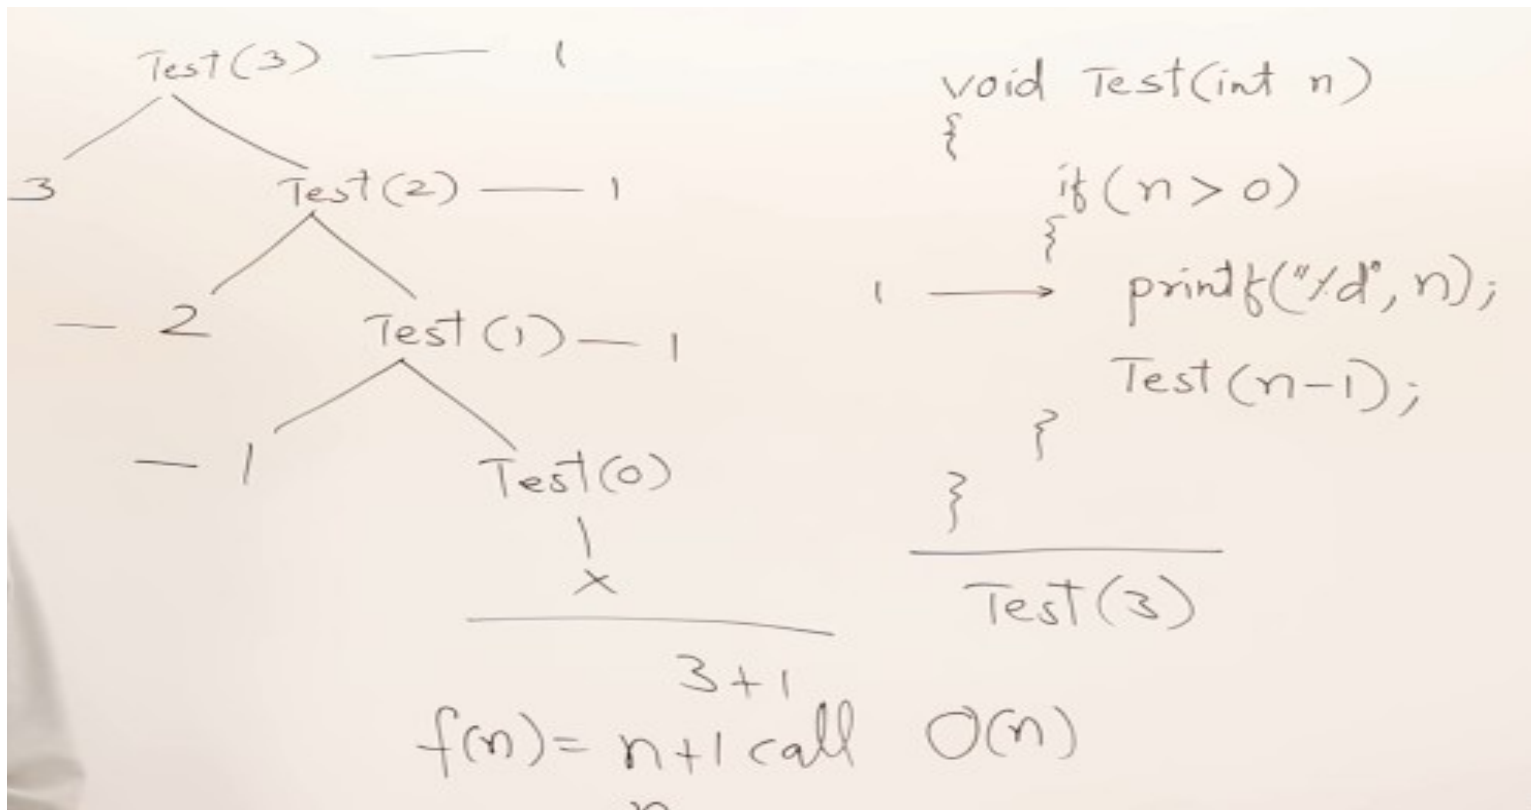 Test(3) — 1
3 Test(2) — 1
— 2 Test(1) — 1
— 1 Test(0)
x
3+1
f(n)= n+1 call O(n)
n
void Test(int n)
{
if(n>0)
{
1 → printf("%d", n);
Test(n-1);
}
}
Test(3)